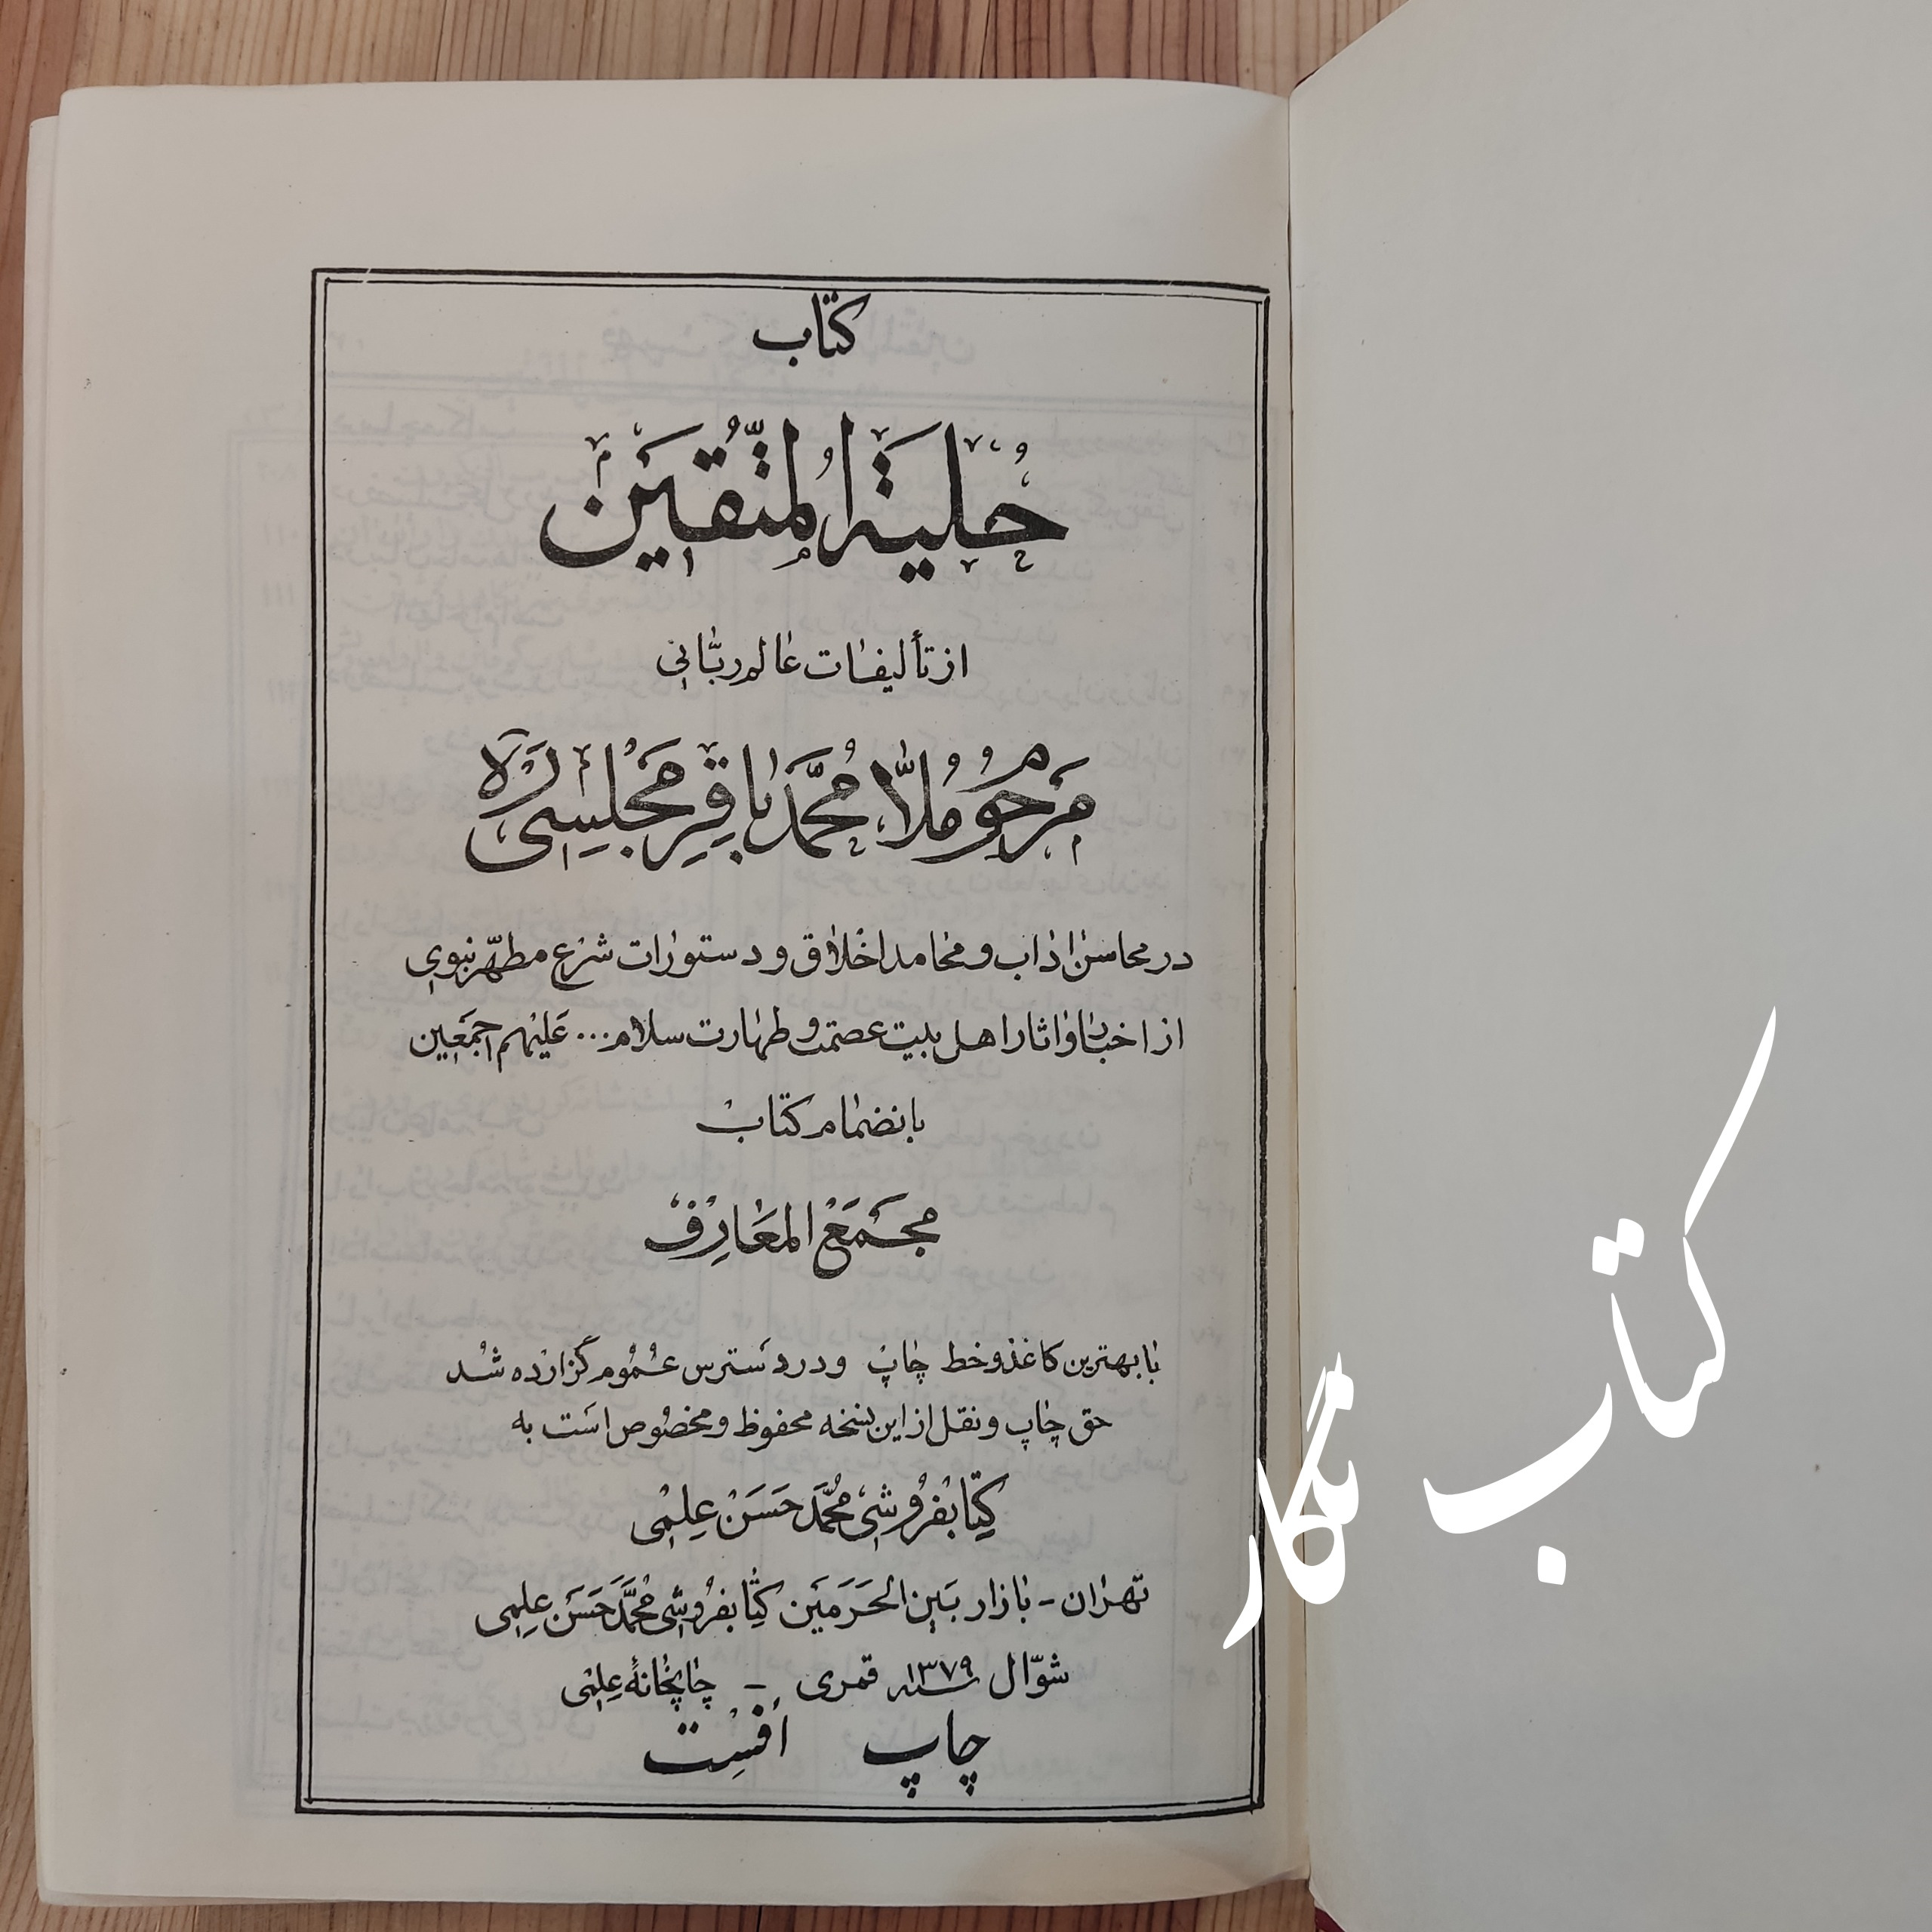 کتاب
حُلیَة المتّقین
از تألیفات عالم ربّانی
مرحوم ملّا محمّد باقر مجلسی ره
در محاسن اداب و محامد اخلاق و دستورات شرع مطهّر نبوی
از اخبار و اثار اهل بیت عصمت و طهارت سلام... علیهم اجمعین
بانضمام کتاب
مجمع المعارف
با بهترین کاغذ و خط چاپ و در دسترس عموم گزارده شد
حق چاپ و نقل از این نسخه محفوظ و مخصوص است به
کتابفروشی محمّد حسن علمی
تهران - بازار بین الحرمین کتابفروشی محمّد حسن علمی
شوّال سنه ۱۳۷۹ قمری - چاپخانهٔ علمی
چاپ افست
کتاب نگار